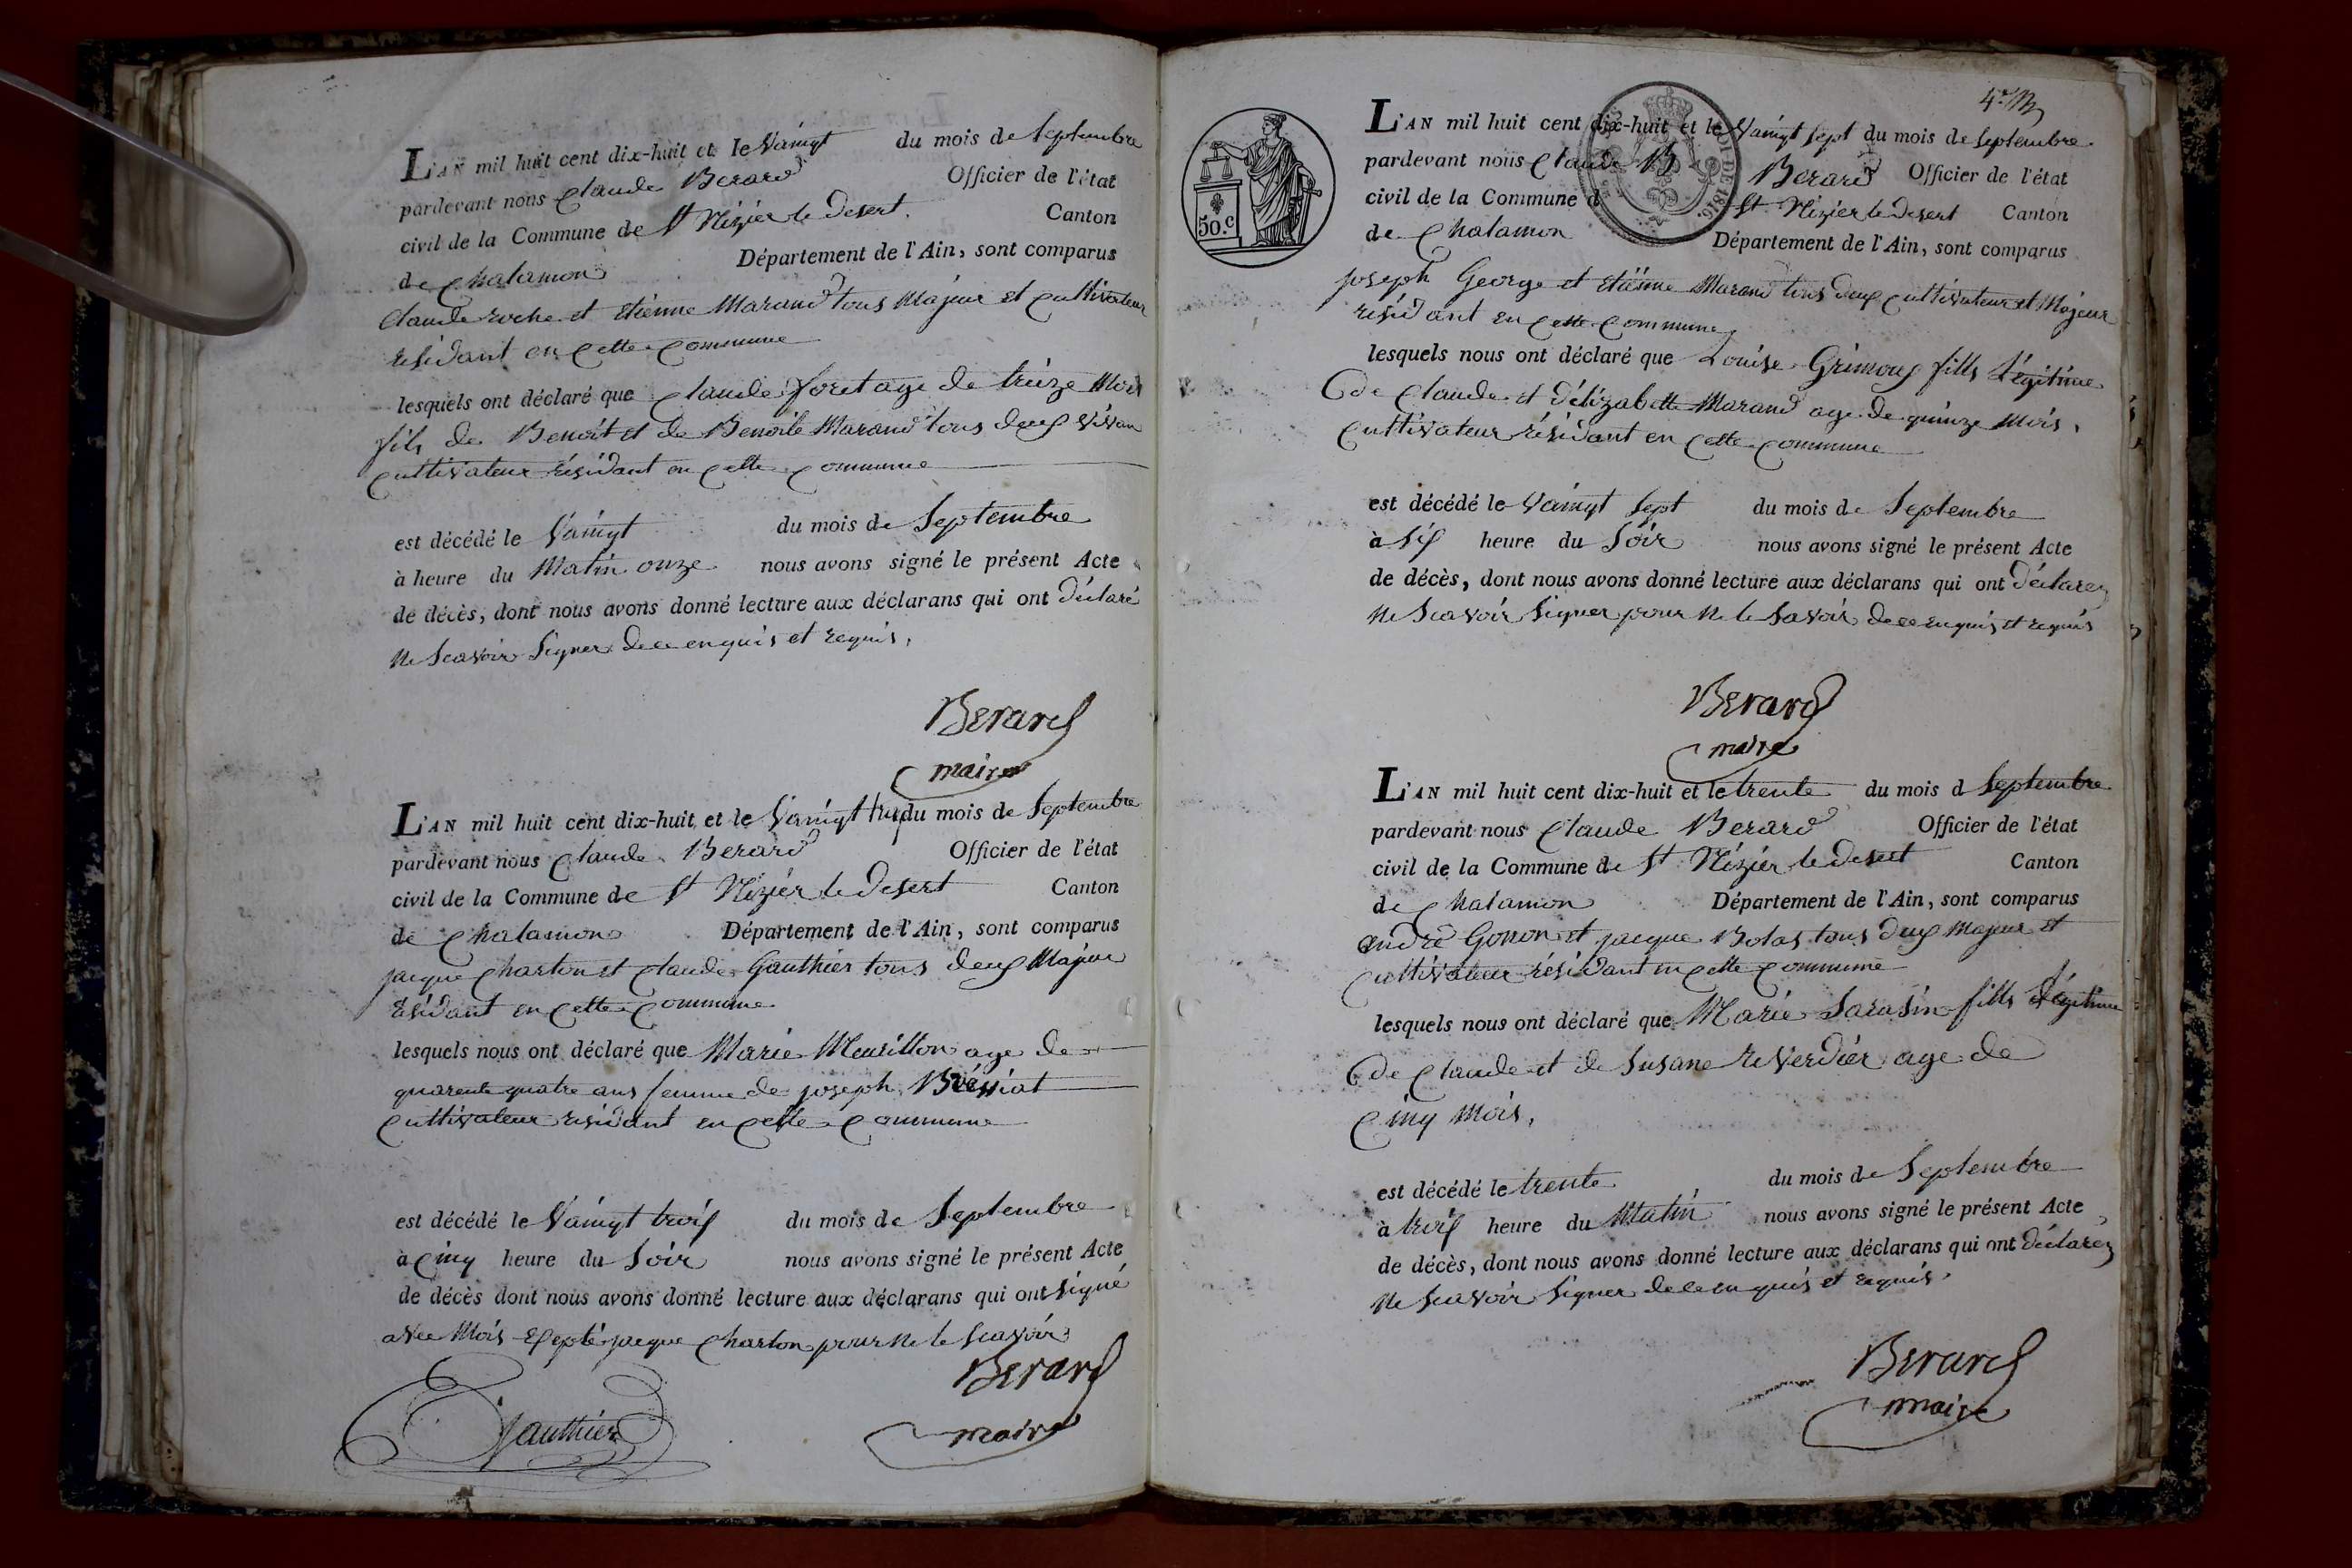 L'AN mil huit cent dix-huit et le Vaingt du mois de Septembre
pardevant nous Claude Berard Officier de l'état
civil de la Commune de St Nizier le Desert. Canton
de Chalamon Département de l'Ain, sont comparus
Claude roche et étienne Marand tous Majeur et Cultivateur
résidant en Cette Commune
lesquels ont déclaré que Claude foret age de treize Mois
fils de Benoit et de Benoite Marand tous deux vivan
Cultivateur résidant en Cette Commune
est décédé le Vaingt du mois de Septembre
à heure du Matin onze nous avons signé le présent Acte
de décès, dont nous avons donné lecture aux déclarans qui ont déclaré
Ne Scavoir Signer de ce enquis et requis.
Berard
maire
L'AN mil huit cent dix-huit et le Vaingt du mois de Septembre
pardevant nous Claude Berard Officier de l'état
civil de la Commune de St Nizier le Desert Canton
de Chalamon Département de l'Ain, sont comparus
jacque Charton et Claude Gauthier tous deux Majeur
résidant en Cette Commune
lesquels nous ont déclaré que Marie Meurillon age de
quarente quatre ans femme de joseph Bressiat
Cultivateur résidant en Cette Commune
est décédé le Vaingt trois du mois de Septembre
à Cinq heure du Soir nous avons signé le présent Acte
de décès dont nous avons donné lecture aux déclarans qui ont Signé
avec Mois Expté jacque Charton pour Ne le Scavoir
Berard
Gauthier
maire
4e
50.c
ROI DE 1816.
L'AN mil huit cent dix-huit et le Vaingt Sept du mois de Septembre
pardevant nous Claude B Berard Officier de l'état
civil de la Commune d St Nizier le Desert Canton
de Chalamon Département de l'Ain, sont comparus
joseph George et étiënne Marand tous deux Cultivateur et Majeur
résidant en Cette Commune
lesquels nous ont déclaré que Louise Grimoux fille Légitime
de Claude et d'élizabette Marand age de quinze Mois.
Cultivateur résidant en Cette Commune
est décédé le Vaingt Sept du mois de Septembre
à Six heure du Soir nous avons signé le présent Acte
de décès, dont nous avons donné lecture aux déclarans qui ont déclarez
Ne Scavoir Signer pour Ne le Savoir de ce enquis et requis
Berard
maire
L'AN mil huit cent dix-huit et le trente du mois d Septembre
pardevant nous Claude Berard Officier de l'état
civil de la Commune de St Nizier le Desert Canton
de Chalamon Département de l'Ain, sont comparus
andré Gonon et jacque Bolas tous deux Majeur et
Cultivateur résidant en Cette Commune
lesquels nous ont déclaré que Marie Sarasin fille Légitime
de Claude et de Susane reverdier age de
Cinq Mois.
est décédé le trente du mois de Septembre
à trois heure du Matin nous avons signé le présent Acte
de décès, dont nous avons donné lecture aux déclarans qui ont déclarez
Ne Scavoir Signer de ce enquis et requis.
Berard
maire